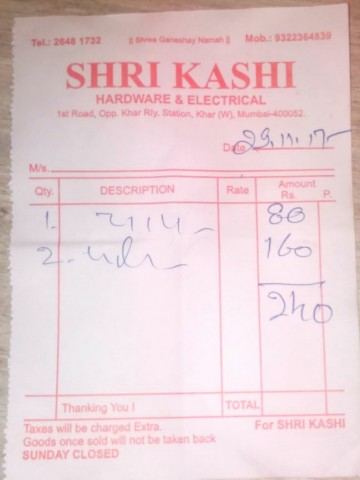 Tel.: 2648 1732 || Shree Ganeshay Namah || Mob.: 9322384839
SHRI KASHI
HARDWARE & ELECTRICAL
1st Road, Opp. Khar Rly. Station, Khar (W), Mumbai-400052.
Date 29.11.17
M/s.
Qty. DESCRIPTION Rate Amount Rs. P.
1. 80
2. 160
240
Thanking You ! TOTAL
Taxes will be charged Extra. For SHRI KASHI
Goods once sold will not be taken back
SUNDAY CLOSED